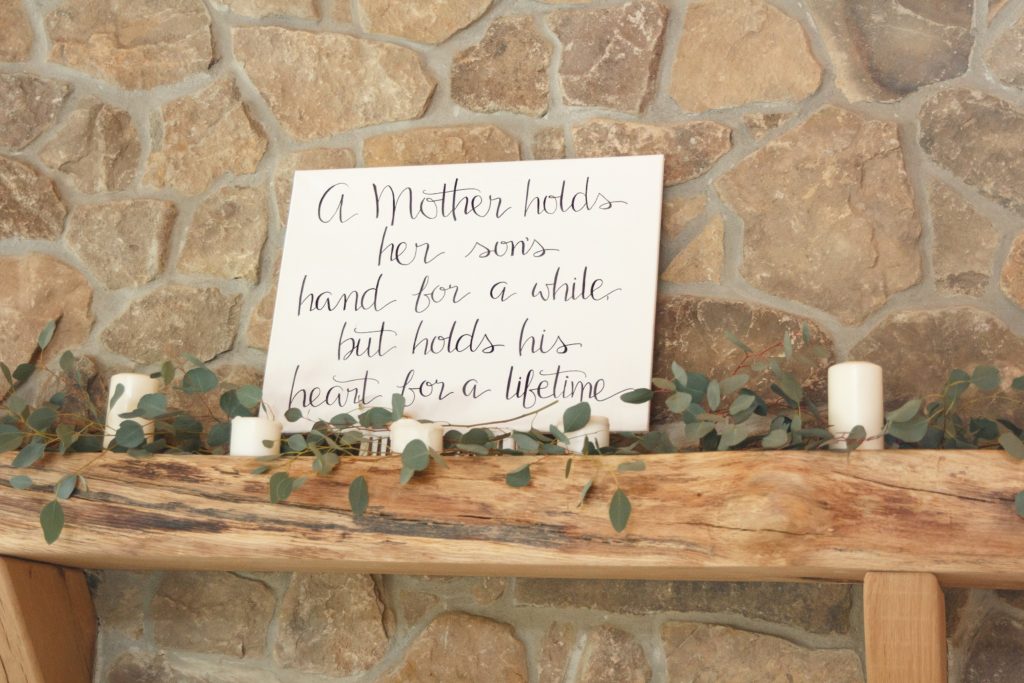 A Mother holds
her son's
hand for a while,
but holds his
heart for a lifetime